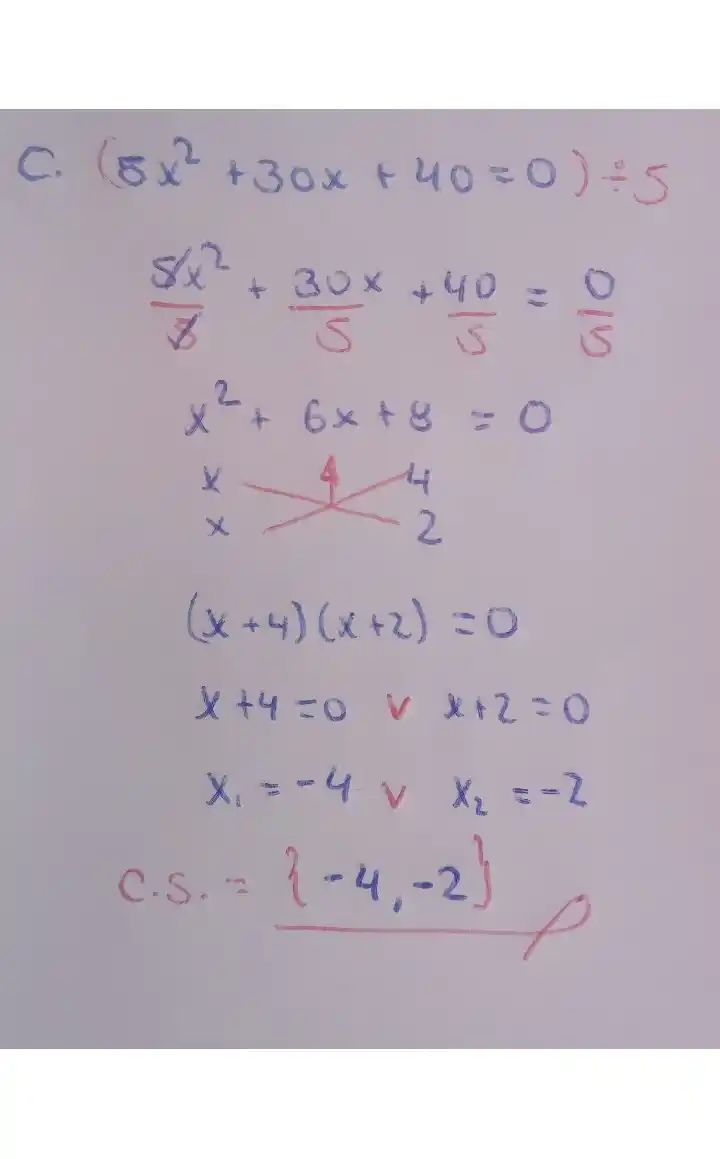 C. (5x² + 30x + 40 = 0) ÷ 5
5x²/5 + 30x/5 + 40/5 = 0/5
x² + 6x + 8 = 0
x 4
x 2
(x + 4)(x + 2) = 0
x + 4 = 0 v x + 2 = 0
x₁ = -4 v x₂ = -2
C.S. = {-4, -2}